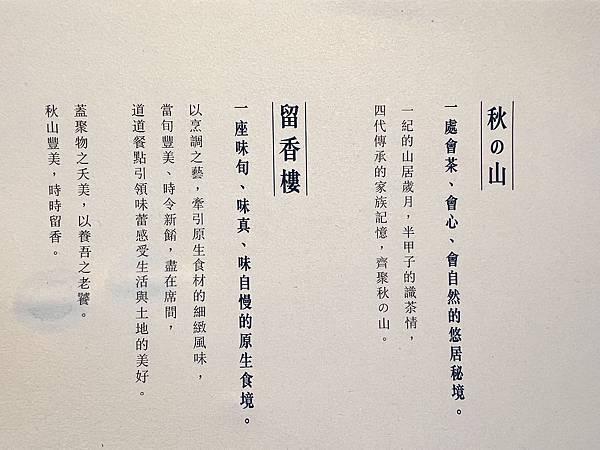 秋の山
一處會茶、會心、會自然的悠居秘境。
一紀的山居歲月，半甲子的識茶情，
四代傳承的家族記憶，齊聚秋の山。
留香樓
一座味旬、味真、味自慢的原生食境。
以烹調之藝，牽引原生食材的細緻風味，
當旬豐美、時令新餚，盡在席間，
道道餐點引領味蕾感受生活與土地的美好。
蓋聚物之夭美，以養吾之老饕。
秋山豐美，時時留香。